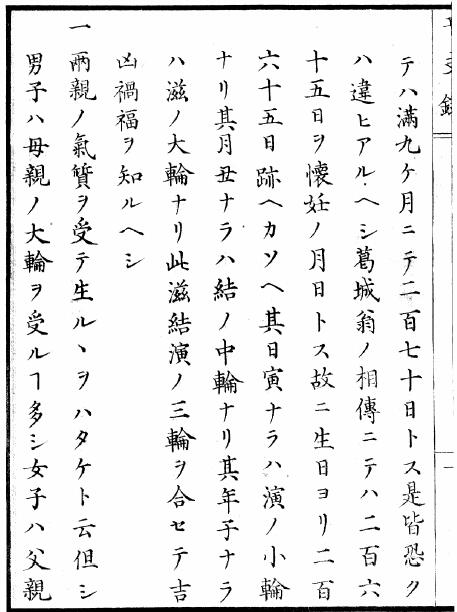 テハ滿九ケ月ニテ二百七十日トス是皆恐ク
ハ違ヒアルヘシ葛城翁ノ相傳ニテハ二百六
十五日ヲ懷妊ノ月日トス故ニ生日ヨリ二百
六十五日跡ヘカソヘ其日寅ナラハ演ノ小輪
ナリ其月丑ナラハ結ノ中輪ナリ其年子ナラ
ハ滋ノ大輪ナリ此滋結演ノ三輪ヲ合セテ吉
凶禍福ヲ知ルヘシ
一 兩親ノ氣質ヲ受テ生ルヽヲハタケト云但シ
男子ハ母親ノ大輪ヲ受ルヿ多シ女子ハ父親